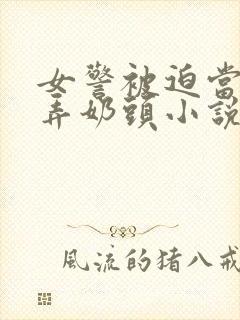 女警被迫當
弄奶頭小說
風流的猪八戒